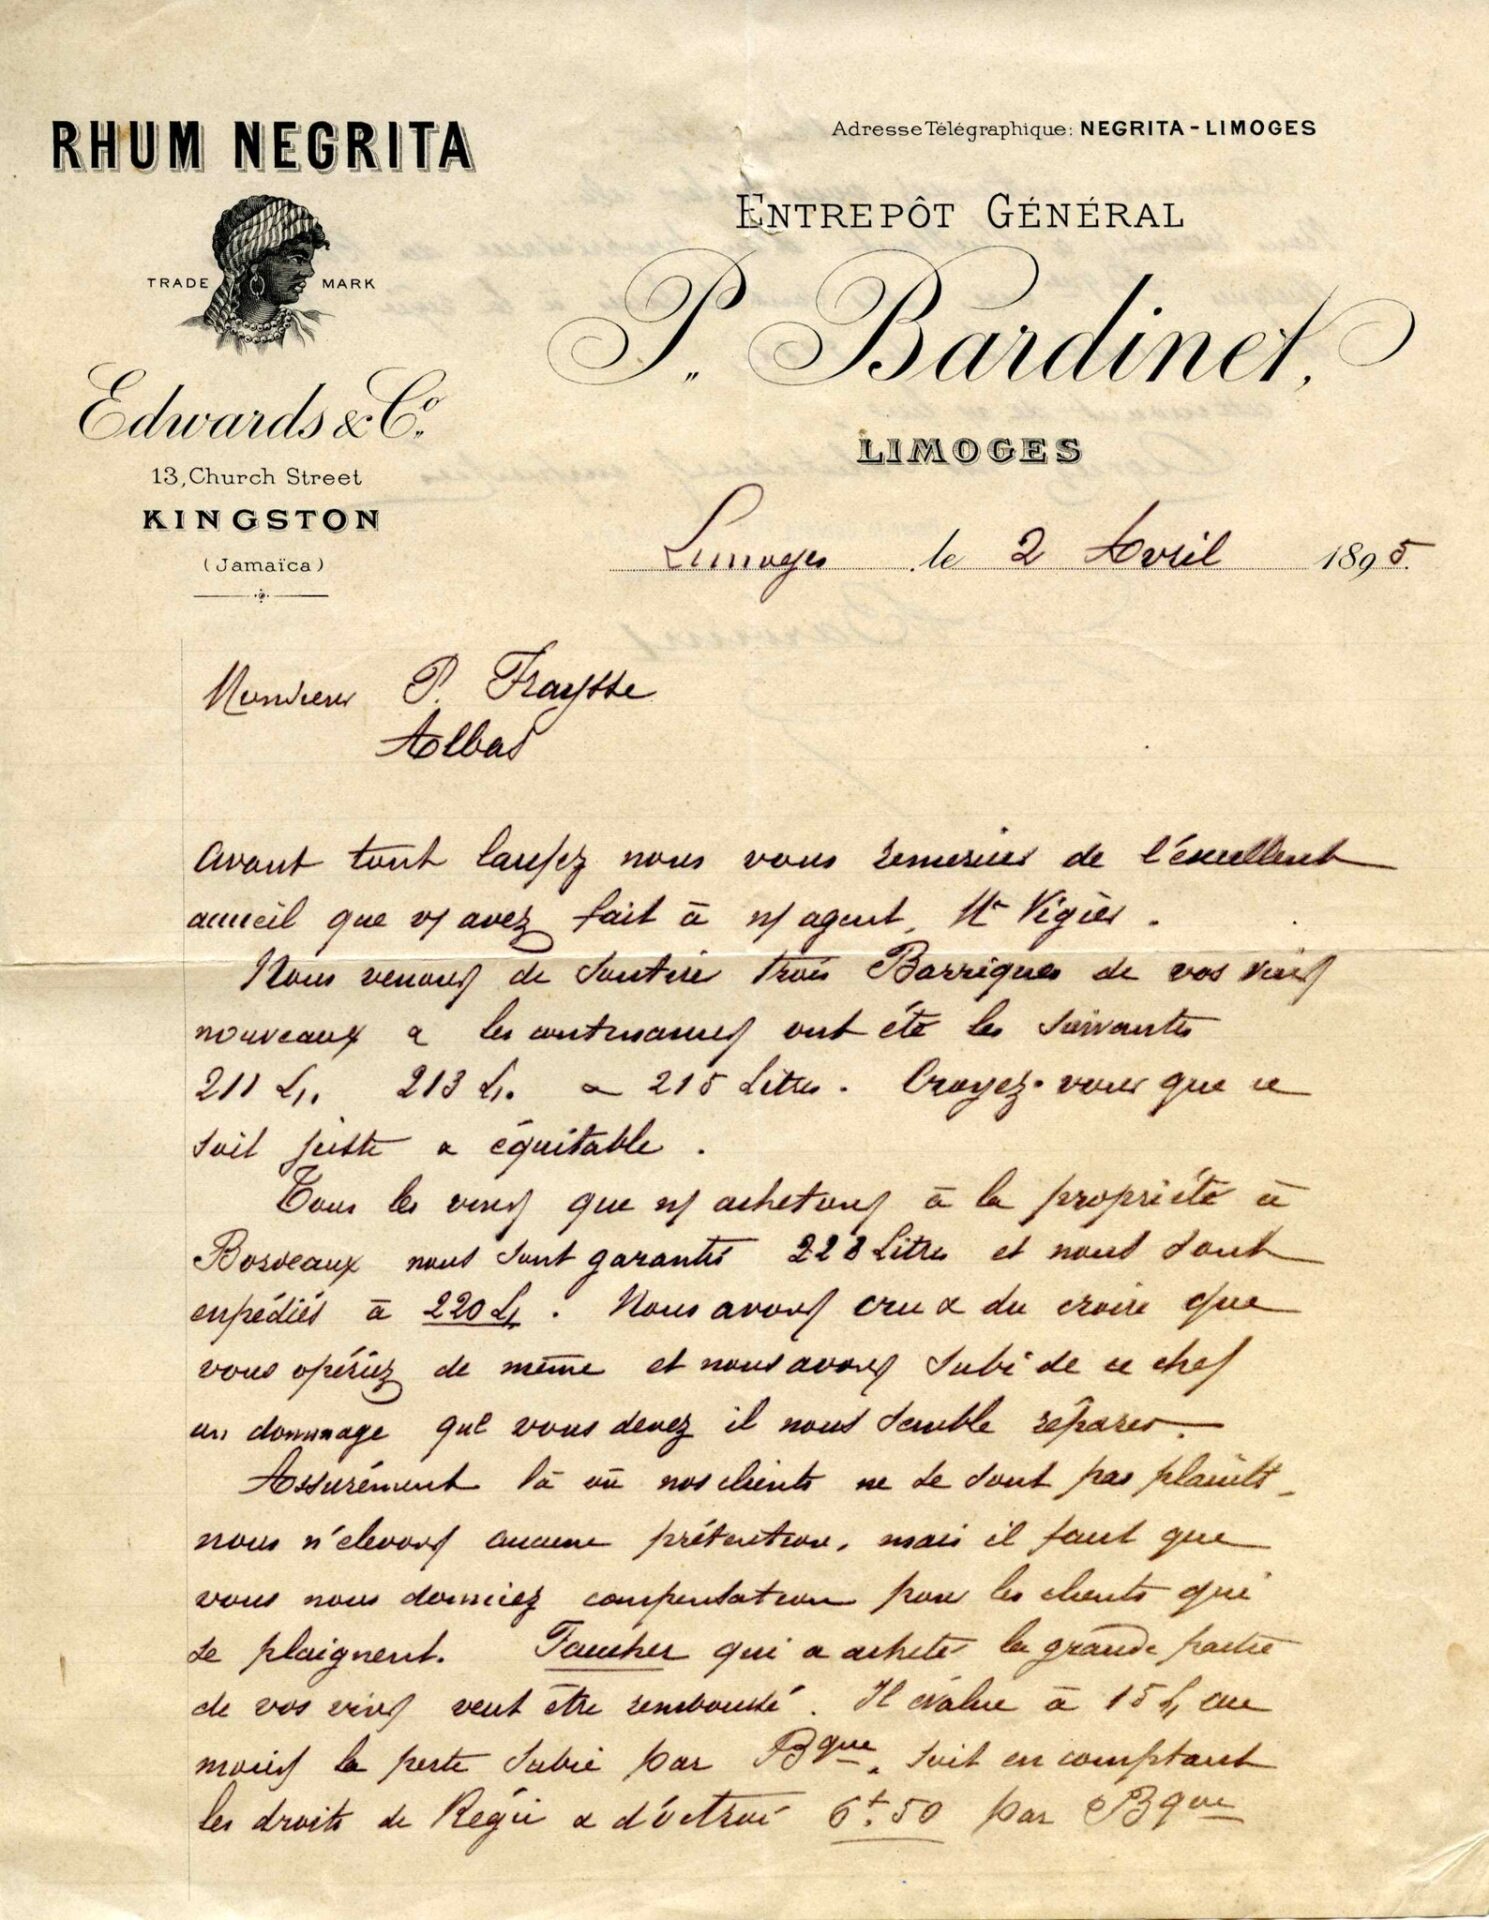 RHUM NEGRITA
TRADE MARK
Edwards & Co.
13, Church Street
KINGSTON
(Jamaïca)
Adresse Télégraphique: NEGRITA-LIMOGES
ENTREPÔT GÉNÉRAL
P. Bardinet,
LIMOGES
Limoges le 2 Avril 1895.
Monsieur P. Fraysse
Albas
Avant tout laissez nous vous remercier de l'excellent
accueil que v/ avez fait à n/ agent, Mr Vigier.
Nous venons de soutirer trois Barriques de vos vins
nouveaux & les contenances ont été les suivantes
211 L. 213 L. & 215 Litres. Croyez-vous que ce
soit juste & équitable.
Tous les vins que n/ achetons à la propriété à
Bordeaux nous sont garantis 228 Litres et nous sont
expédiés à 220 L. Nous avons cru & du croire que
vous opériez de même et nous avons subi de ce chef
un dommage que vous devez il nous semble réparer.
Assurément là où nos clients ne se sont pas plaints
nous n'élevons aucune prétention, mais il faut que
vous nous donniez compensation pour les clients qui
se plaignent. Faucher qui a acheté la grande partie
de vos vins veut être remboursé. Il évalue à 15 L au
moins la perte subie par Bque. soit en comptant
les droits de Régie & d'octroi 6f.50 par Bque